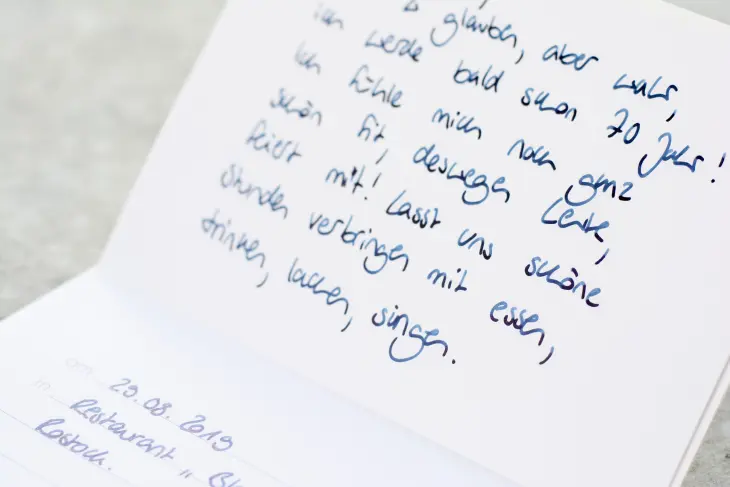 glauben, aber wahr,
ich werde bald schon 70 Jahr!
Ich fühle mich noch ganz
schön fit, deswegen Leute,
feiert mit! Lasst uns schöne
Stunden verbringen mit essen,
trinken, lachen, singen.
am 29.08.2019
in Restaurant "
Rostock.